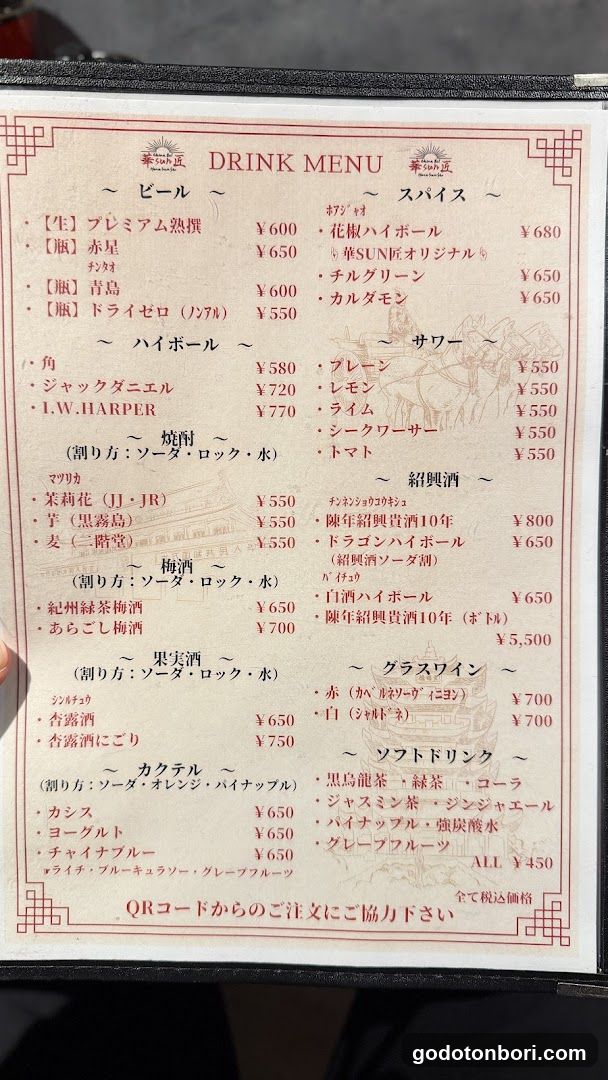 華sun匠
DRINK MENU
華sun匠
～ ビール ～
・【生】プレミアム熟撰 ¥600
・【瓶】赤星 ¥650
チンタオ
・【瓶】青島 ¥600
・【瓶】ドライゼロ（ﾉﾝｱﾙ） ¥550
～ ハイボール ～
・角 ¥580
・ジャックダニエル ¥720
・I.W.HARPER ¥770
～ 焼酎 ～
（割り方：ソーダ・ロック・水）
マツリカ
・茉莉花（JJ・JR） ¥550
・芋（黒霧島） ¥550
・麦（二階堂） ¥550
～ 梅酒 ～
（割り方：ソーダ・ロック・水）
・紀州緑茶梅酒 ¥650
・あらごし梅酒 ¥700
～ 果実酒 ～
（割り方：ソーダ・ロック・水）
シンルチュウ
・杏露酒 ¥650
・杏露酒にごり ¥750
～ カクテル ～
（割り方：ソーダ・オレンジ・パイナップル）
・カシス ¥650
・ヨーグルト ¥650
・チャイナブルー ¥650
ライチ・ブルーキュラソー・グレープフルーツ
～ スパイス ～
ホアジャオ
・花椒ハイボール ¥680
華SUN匠オリジナル
・チルグリーン ¥650
・カルダモン ¥650
～ サワー ～
・プレーン ¥550
・レモン ¥550
・ライム ¥550
・シークワーサー ¥550
・トマト ¥550
～ 紹興酒 ～
チンネンショウコウキシュ
・陳年紹興貴酒10年 ¥800
・ドラゴンハイボール ¥650
（紹興酒ソーダ割）
バイチュウ
・白酒ハイボール ¥650
・陳年紹興貴酒10年（ﾎﾞﾄﾙ）
¥5,500
～ グラスワイン ～
・赤（ｶﾍﾞﾙﾈｿｰｳﾞｨﾆﾖﾝ） ¥700
・白（ｼｬﾙﾄﾞﾈ） ¥700
～ ソフトドリンク ～
・黒烏龍茶 ・緑茶 ・コーラ
・ジャスミン茶 ・ジンジャエール
・パイナップル・強炭酸水
・グレープフルーツ
ALL ¥450
全て税込価格
QRコードからのご注文にご協力下さい
godotonbori.com